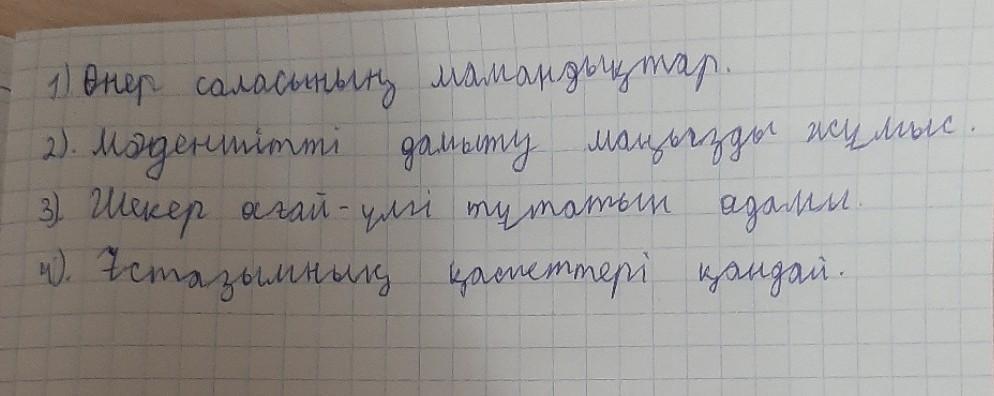 1) Өнер саласының мамандықтар.
2). Мәдениетті дамыту маңызды жұмыс.
3). Шекер ағай-үлгі тұтатын адамы.
4). Ұстазымның қасиеттері қандай.